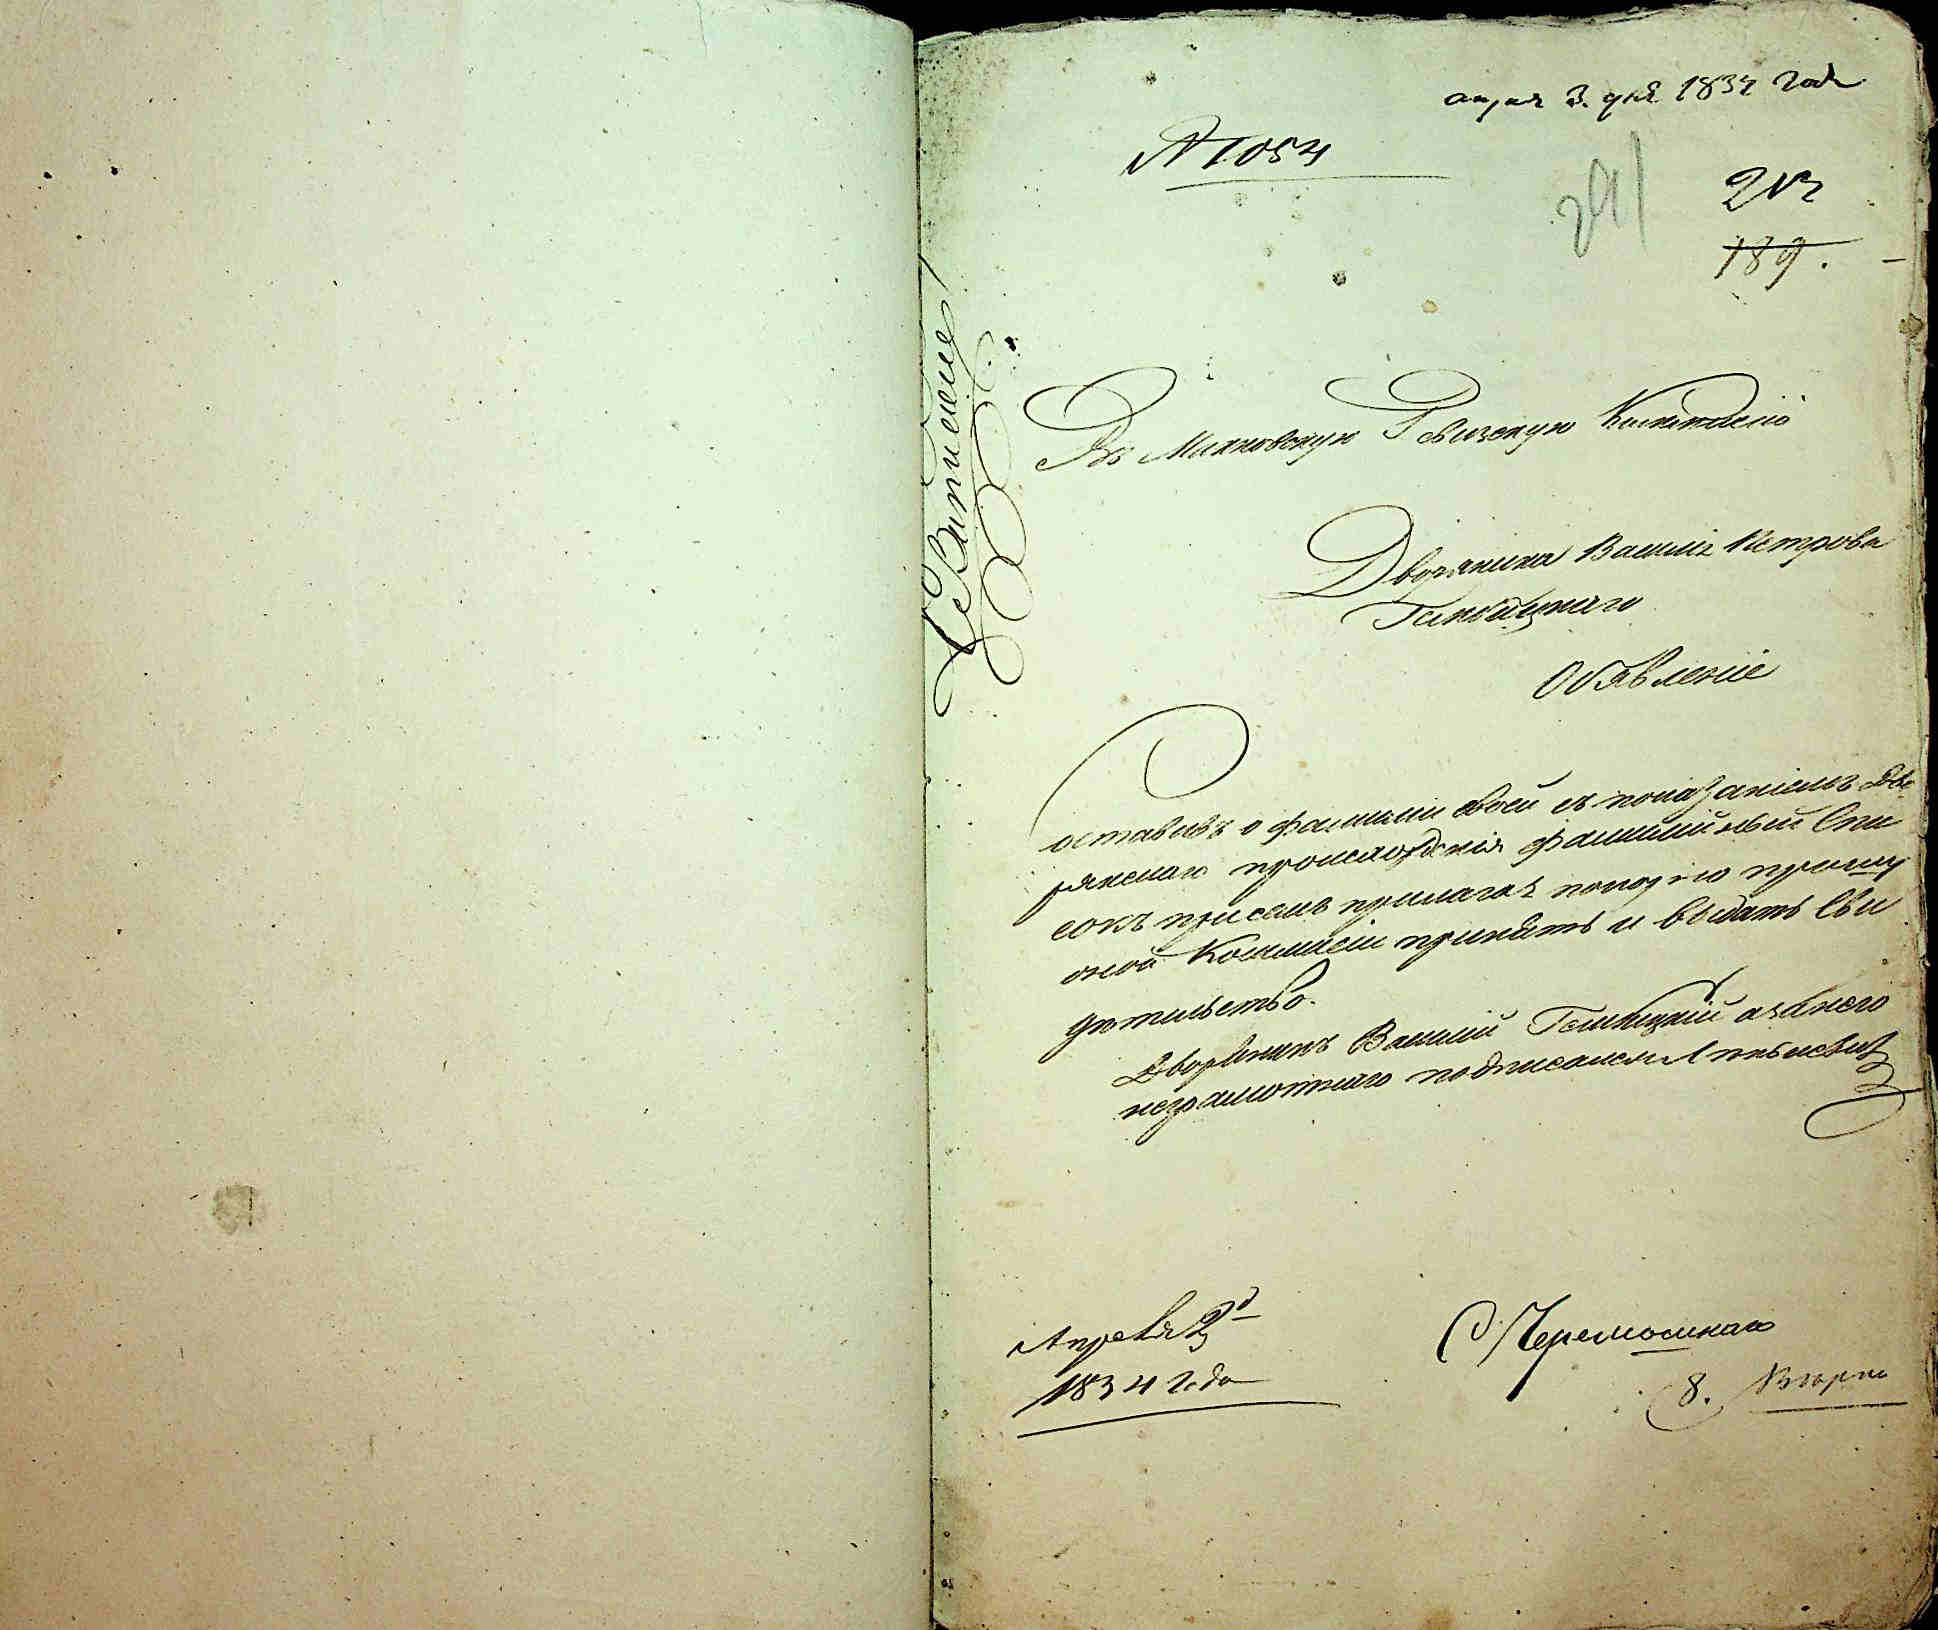 апреля 3. дня 1834 года
№ 1054
291
212
189.
Въ Махновскую Ревизскую Коммисію
Дворянина Василія Петрова
Объявленіе
оставивъ о фамиліи своей съ показаніемъ Дво
рянскаго происхожденія фамилійный Спи
сокъ при семъ прилагая покорно прошу
оной Коммисіи принять и выдать Сви
дѣтельство.
Дворянинъ Василій а за него
неграмотнаго подписался
Апреля 3д
1834 года
С Черемошнаго
8.